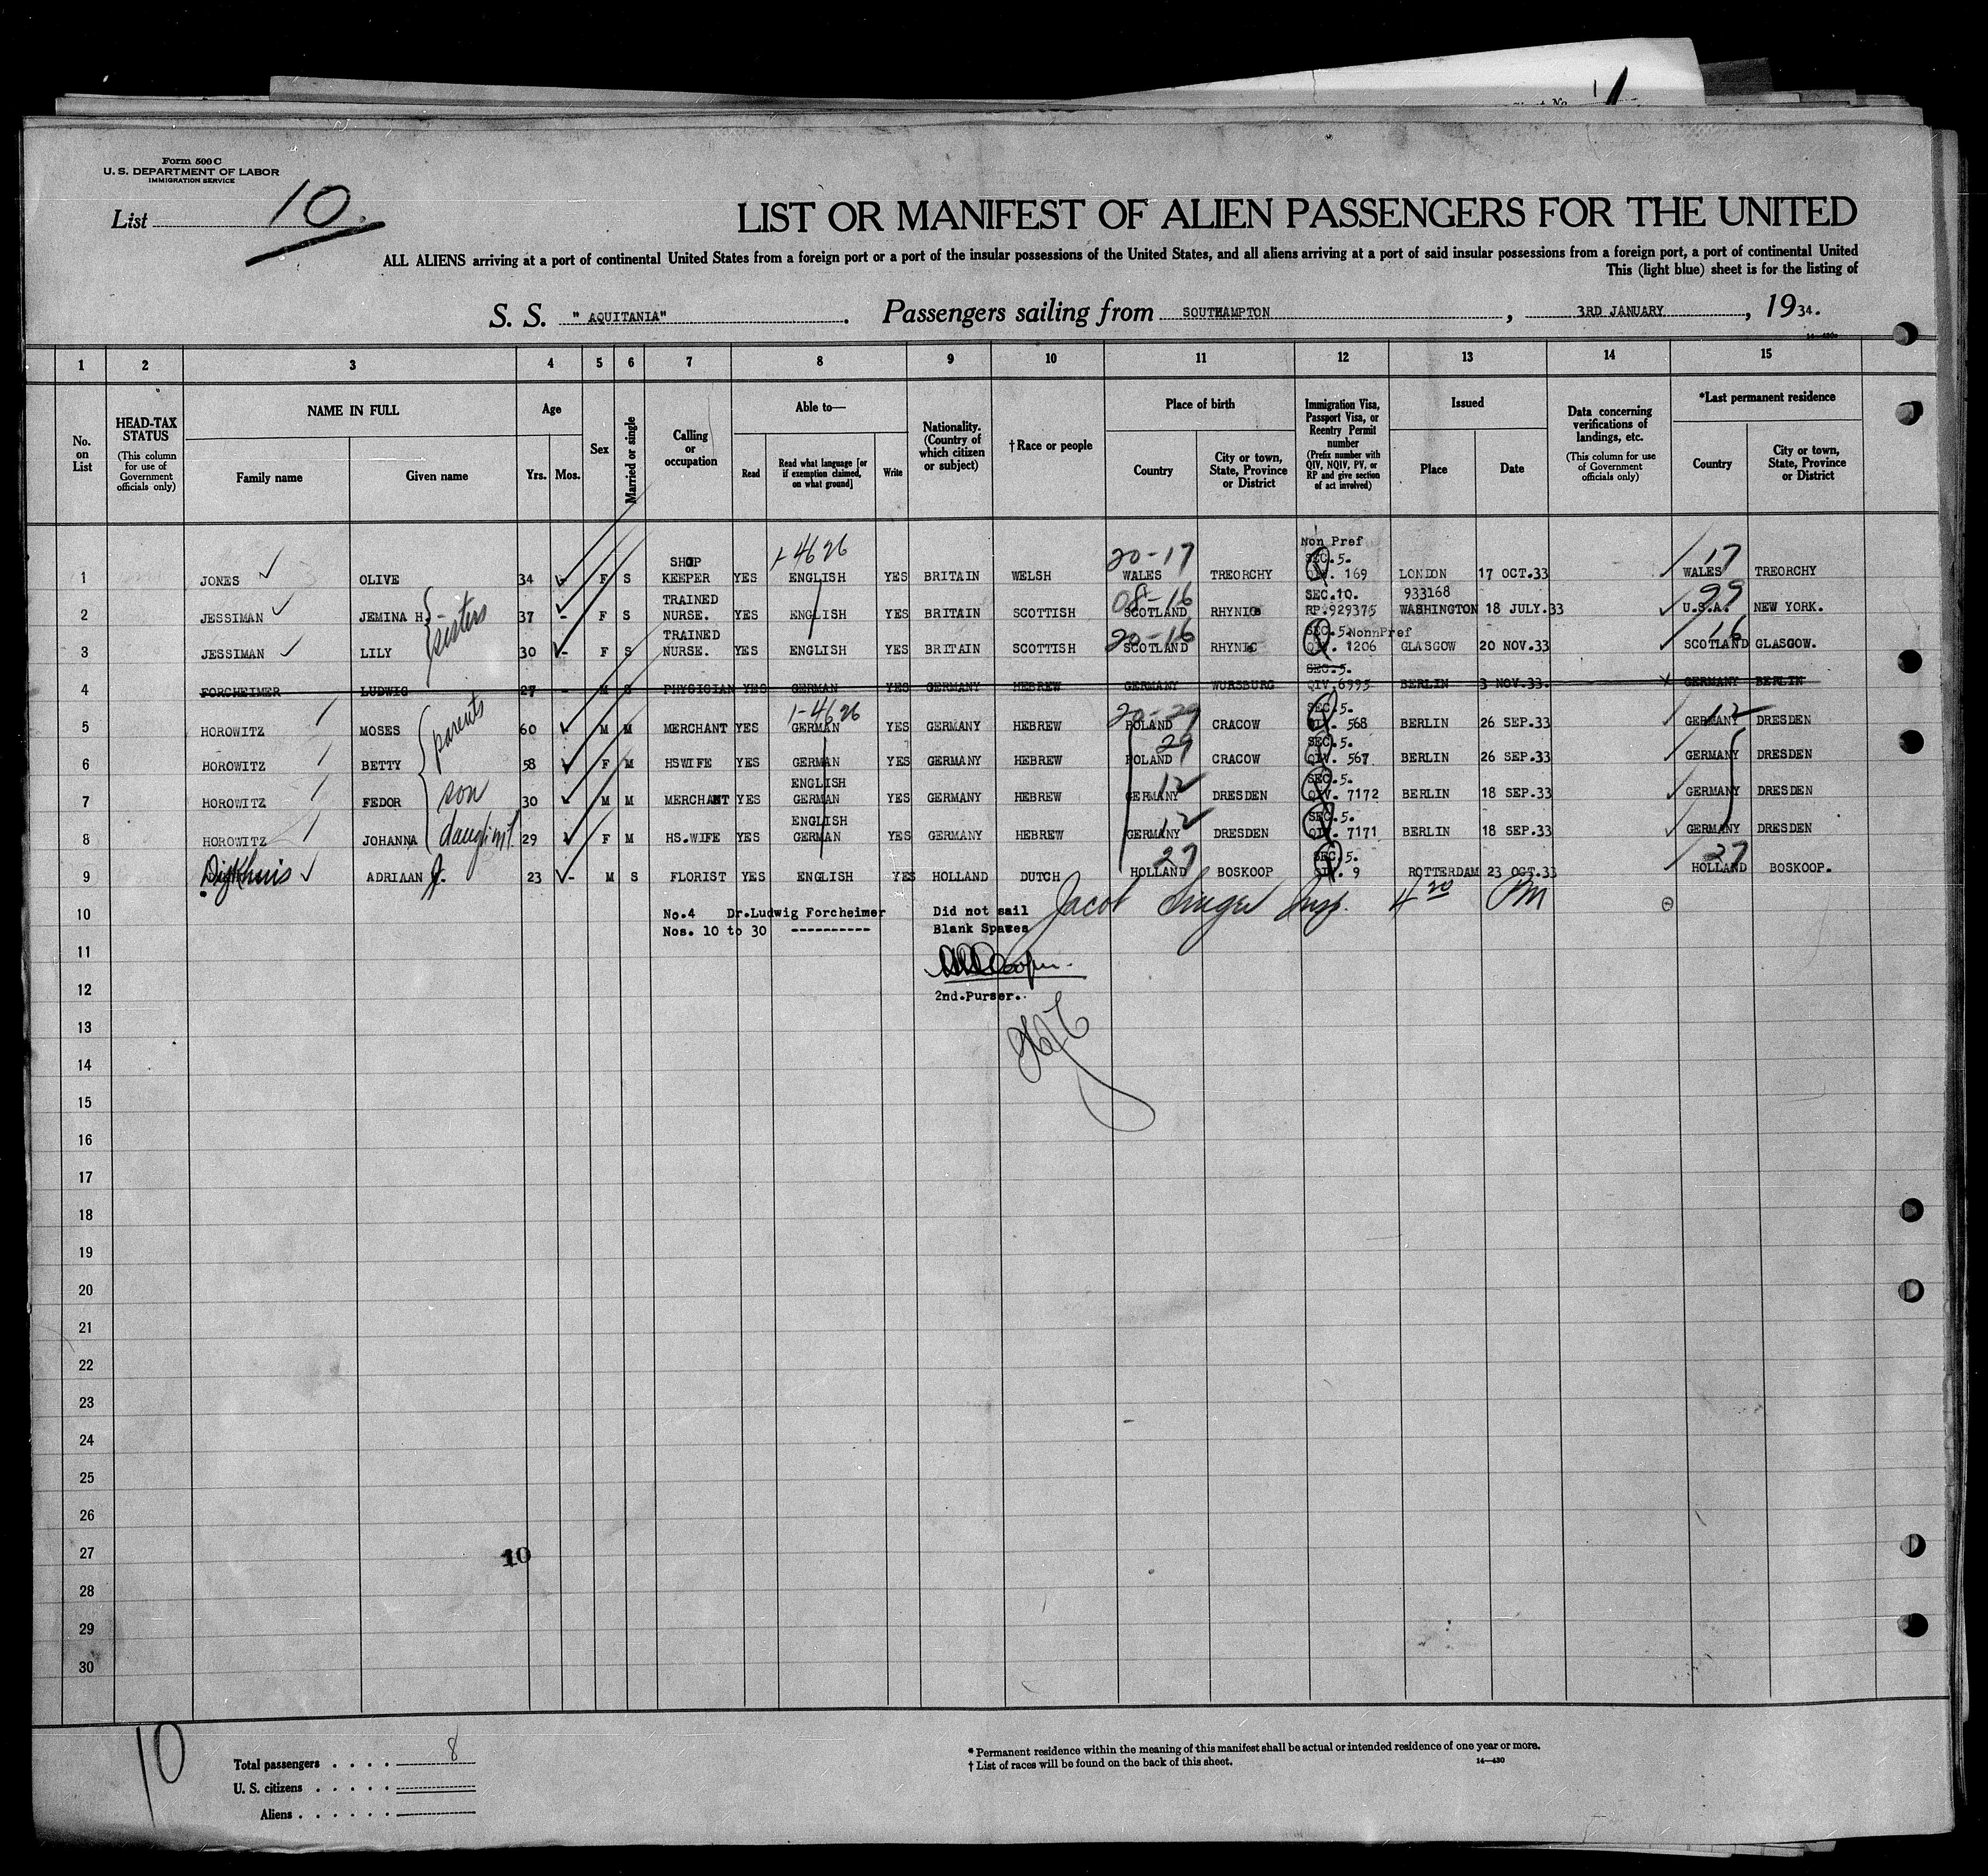 Form 500 C
U. S. DEPARTMENT OF LABOR
IMMIGRATION SERVICE
List 10
LIST OR MANIFEST OF ALIEN PASSENGERS FOR THE UNITED
ALL ALIENS arriving at a port of continental United States from a foreign port or a port of the insular possessions of the United States, and all aliens arriving at a port of said insular possessions from a foreign port, a port of continental United
This (light blue) sheet is for the listing of
S. S. "AQUITANIA". Passengers sailing from SOUTHAMPTON, 3RD JANUARY, 1934.
1 2 3 4 5 6 7 8 9 10 11 12 13 14 15
No. on List
HEAD-TAX STATUS (This column for use of Government officials only)
NAME IN FULL Family name Given name
Age Yrs. Mos.
Sex
Married or single
Calling or occupation
Able to— Read Read what language [or if exemption claimed, on what ground] Write
Nationality. (Country of which citizen or subject)
† Race or people
Place of birth Country City or town, State, Province or District
Immigration Visa, Passport Visa, or Reentry Permit number (Prefix number with QIV, NQIV, PV, or RP and give section of act involved)
Issued Place Date
Data concerning verifications of landings, etc. (This column for use of Government officials only)
*Last permanent residence Country City or town, State, Province or District
Non Pref
SHOP 1-4626 20-17 SEC.5. 17
1 JONES OLIVE 34 - F S KEEPER YES ENGLISH YES BRITAIN WELSH WALES TREORCHY QIV. 169 LONDON 17 OCT.33 WALES TREORCHY
TRAINED 08-16 SEC.10. 933168 99
2 JESSIMAN JEMINA H. 37 - F S NURSE. YES ENGLISH YES BRITAIN SCOTTISH SCOTLAND RHYNIE RP.929375 WASHINGTON 18 JULY.33 U.S.A. NEW YORK.
sisters
TRAINED 20-16 SEC.5. NonnPref 16
3 JESSIMAN LILY 30 - F S NURSE. YES ENGLISH YES BRITAIN SCOTTISH SCOTLAND RHYNIE QIV. 1206 GLASGOW 20 NOV.33 SCOTLAND GLASGOW.
SEC.5.
4 FORCHEIMER LUDWIG 27 - M S PHYSICIAN YES GERMAN YES GERMANY HEBREW GERMANY WURSBURG QIV.6995 BERLIN 3 NOV.33. GERMANY BERLIN
parents 1-4626 20-29 SEC.5. 12
5 HOROWITZ MOSES 60 M M MERCHANT YES GERMAN YES GERMANY HEBREW POLAND CRACOW QIV. 568 BERLIN 26 SEP.33 GERMANY DRESDEN
29 SEC.5.
6 HOROWITZ BETTY 58 F M HSWIFE YES GERMAN YES GERMANY HEBREW POLAND CRACOW QIV. 567 BERLIN 26 SEP.33 GERMANY DRESDEN
son ENGLISH 12 SEC.5.
7 HOROWITZ FEDOR 30 M M MERCHANT YES GERMAN YES GERMANY HEBREW GERMANY DRESDEN QIV. 7172 BERLIN 18 SEP.33 GERMANY DRESDEN
ENGLISH 12 SEC.5.
8 HOROWITZ JOHANNA 29 F M HS.WIFE YES GERMAN YES GERMANY HEBREW GERMANY DRESDEN QIV. 7171 BERLIN 18 SEP.33 GERMANY DRESDEN
27 SEC.5. 27
9 Dijkhuis ADRIAAN J. 23 - M S FLORIST YES ENGLISH YES HOLLAND DUTCH HOLLAND BOSKOOP QIV. 9 ROTTERDAM 23 OCT.33 HOLLAND BOSKOOP.
10 No.4 Dr.Ludwig Forcheimer Did not sail Jacob Singer Insp. 4 20 PM
Nos. 10 to 30 ---------- Blank Spaces
11
12 2nd.Purser.
13
14
15
16
17
18
19
20
21
22
23
24
25
26
27 10
28
29
30
10
Total passengers . . . . 8
U. S. citizens . . . . .
Aliens . . . . . .
* Permanent residence within the meaning of this manifest shall be actual or intended residence of one year or more.
† List of races will be found on the back of this sheet. 14—430